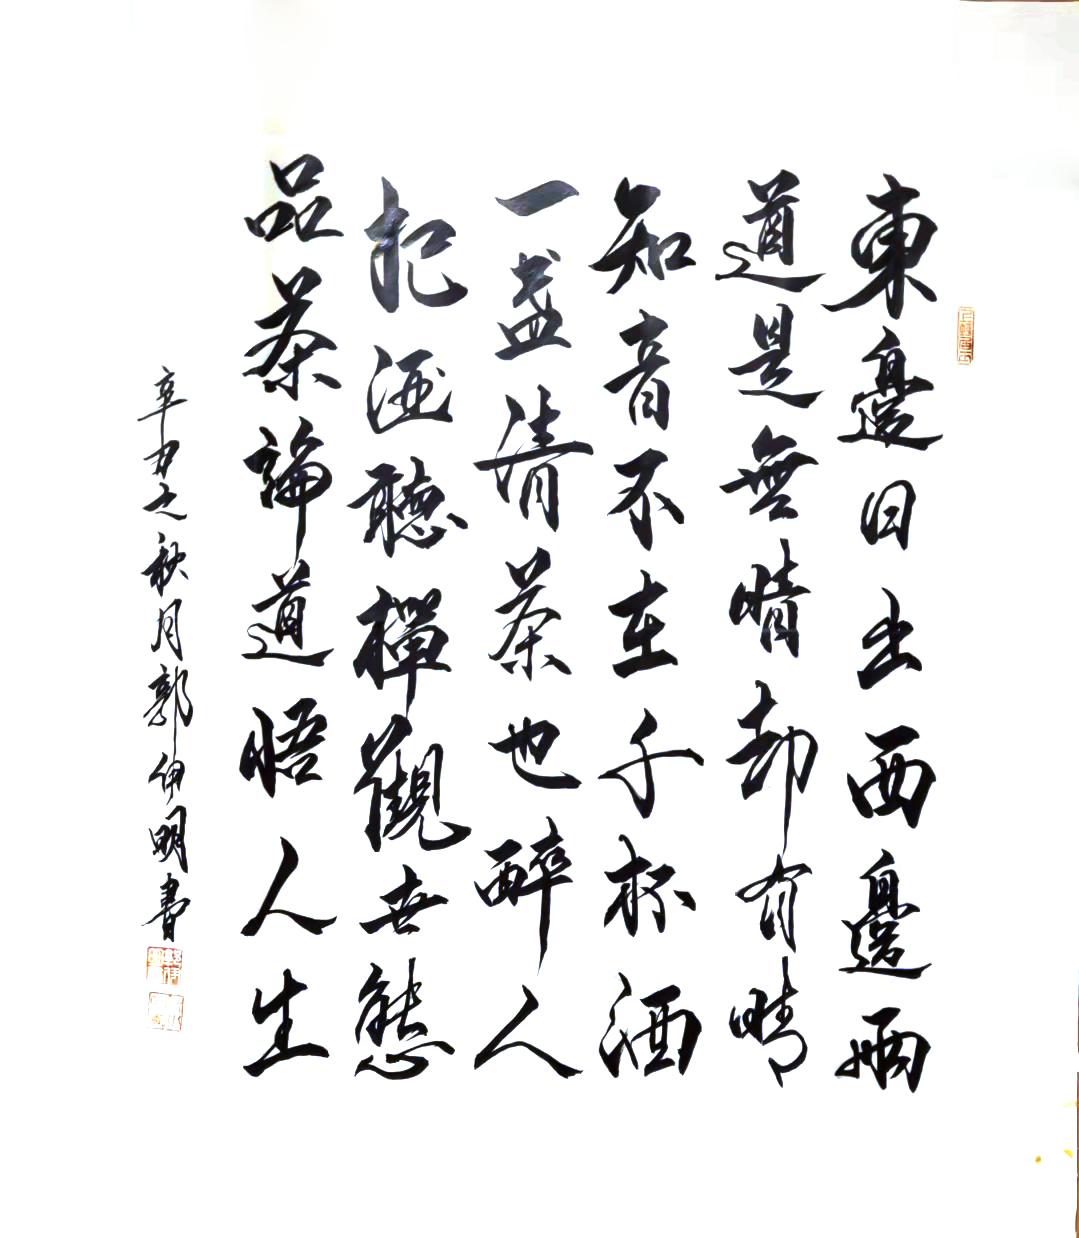 東邊日出西邊雨
道是無晴却有晴
知音不在千杯酒
一盏清茶也醉人
把酒聽禪觀世態
品茶論道悟人生
辛丑之秋月郭伊明書